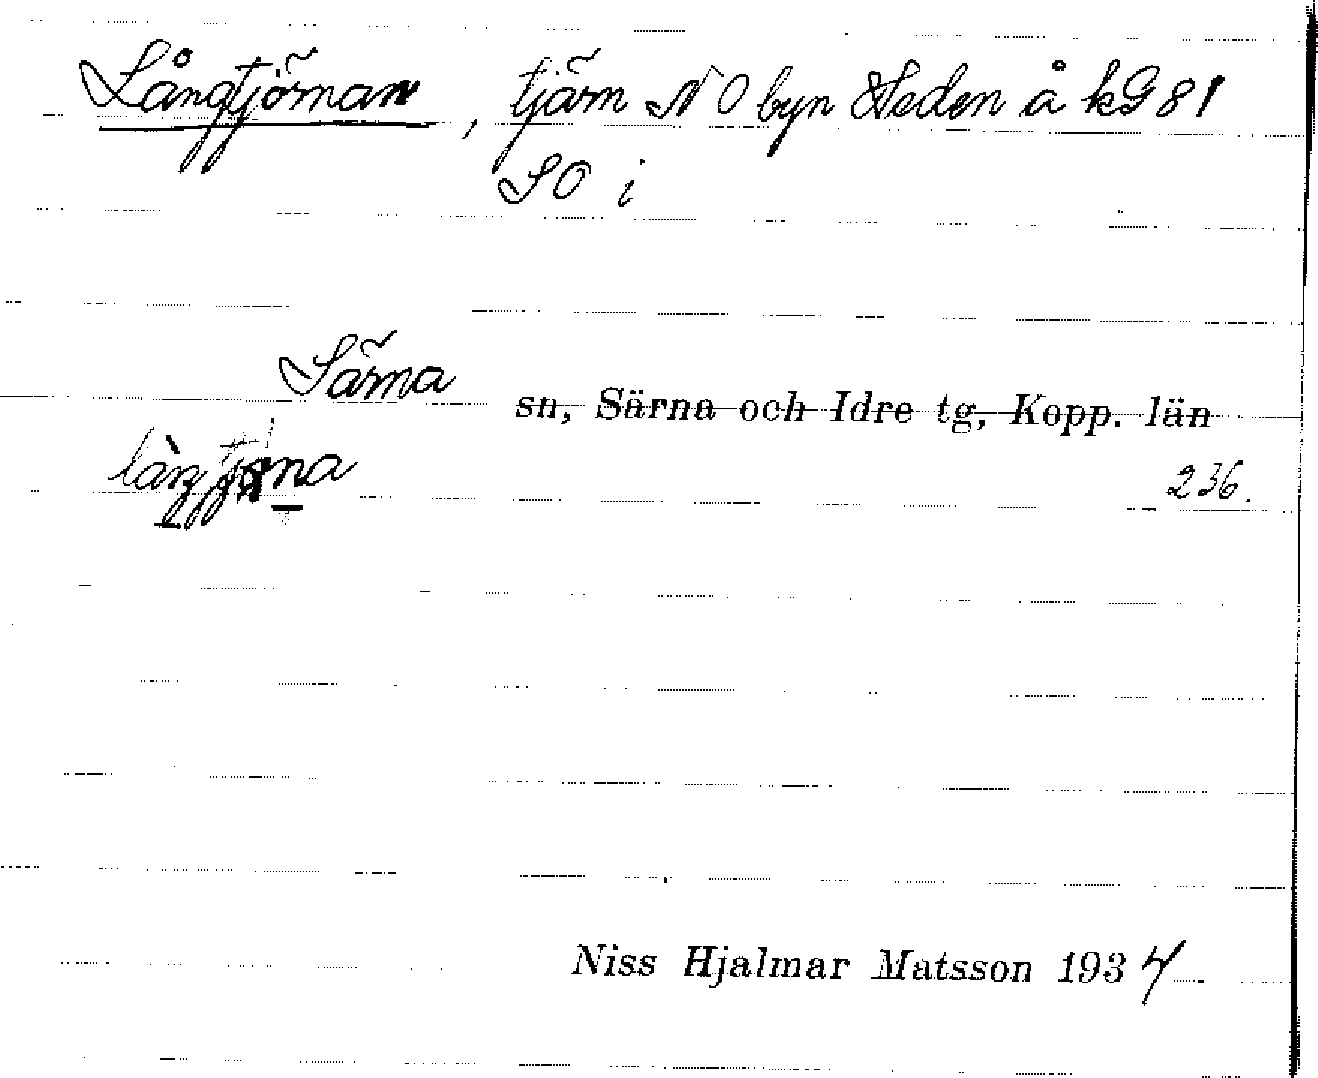 Långtjörnan, tjärn NO byn Heden å kG 81
SO i
Särna sn, Särna och Idre tg, Kopp. län
236.
Niss Hjalmar Matsson 1934